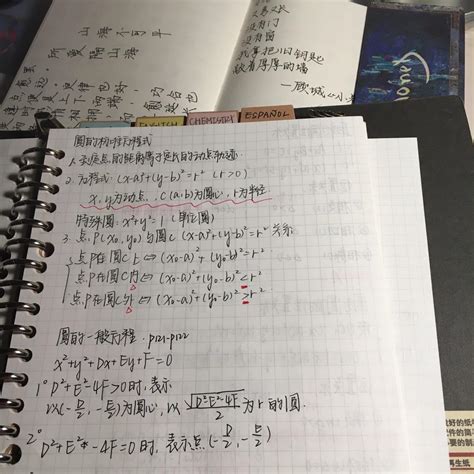 山海不可平
所爱隔山海
又寒又长
没有门
没有窗
我拿把旧钥匙
敲着厚厚的墙
—顾城《小巷》
ENGLISH
CHEMISTRY
ESPAÑOL
圆的标准方程式
1. 到定点的距离等于定长的动点轨迹
2. 方程式 (x-a)²+(y-b)²=r² (r>0)
x, y为动点, C(a,b)为圆心, r为半径
特殊圆: x²+y²=1 (单位圆)
3. 点P(x₀,y₀)与圆C (x-a)²+(y-b)²=r² 关系
点P在圆C上⇔(x₀-a)²+(y₀-b)²=r²
点P在圆C内⇔(x₀-a)²+(y₀-b)²<r²
点P在圆C外⇔(x₀-a)²+(y₀-b)²>r²
圆的一般方程. P121-P122
x²+y²+Dx+Ey+F=0
1° D²+E²-4F>0时, 表示
以(-D/2, -E/2)为圆心, 以 √(D²+E²-4F)/2 为r的圆.
2° D²+E²-4F=0时, 表示点(-D/2, -E/2)
再生纸